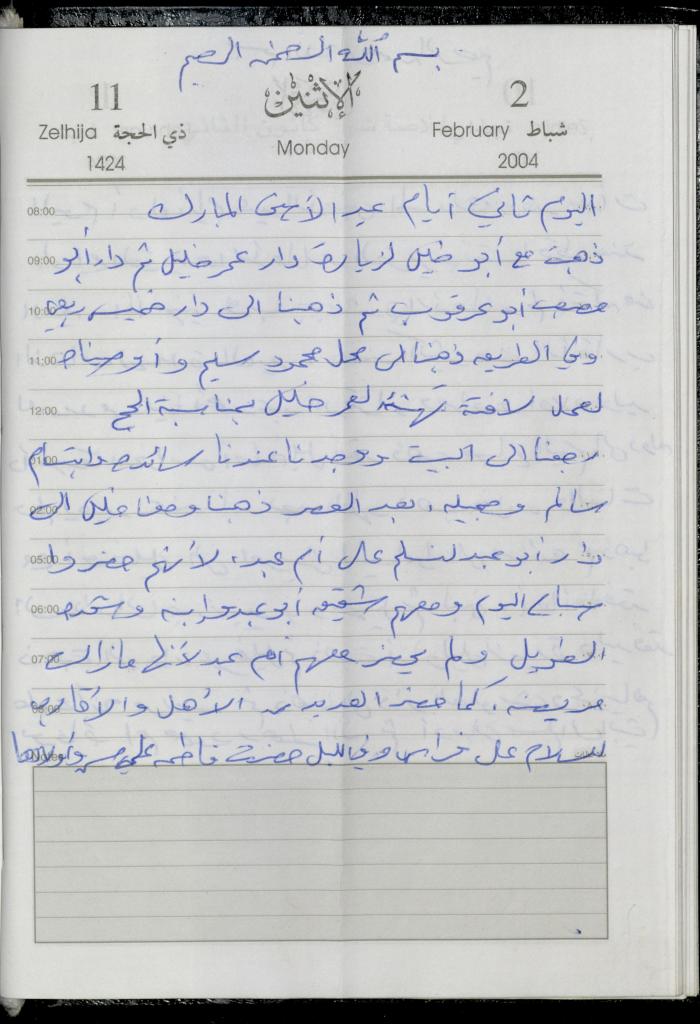 بسم الله الرحمن الرحيم
11 الإثنين 2
Zelhija ذي الحجة Monday February شباط
1424 2004
08:00 اليوم ثاني أيام عيد الأضحى المبارك
09:00 ذهبت مع أبو خليل لزيارة دار عمر خليل ثم دار أبو
10:00 أبو عرقوب ثم ذهبنا الى دار خميس ربيع
11:00 وفي الطريق ذهبنا الى محل محمود سليم وأبو
12:00 لعمل لافتة تهنئة لعمر خليل بمناسبة الحج
01:00 رجعنا الى البيت ووجدنا عندنا وابتسام
02:00 سالم وجميله. بعد العصر ذهبنا ومعنا خليل الى
05:00 دار أبو عبد لنسلم على أم عبد، لأنهم حضروا
06:00 اليوم ومعهم شقيق أبو عبد وابنه
07:00 الطويل ولم يحضر معهم أم عبد لأنها مازالت
08:00 مريضه. كما حضر العديد من الأهل والأقارب
Notes للسلام على فراس وفي الليل حضرت فاطمه علي وأولادها